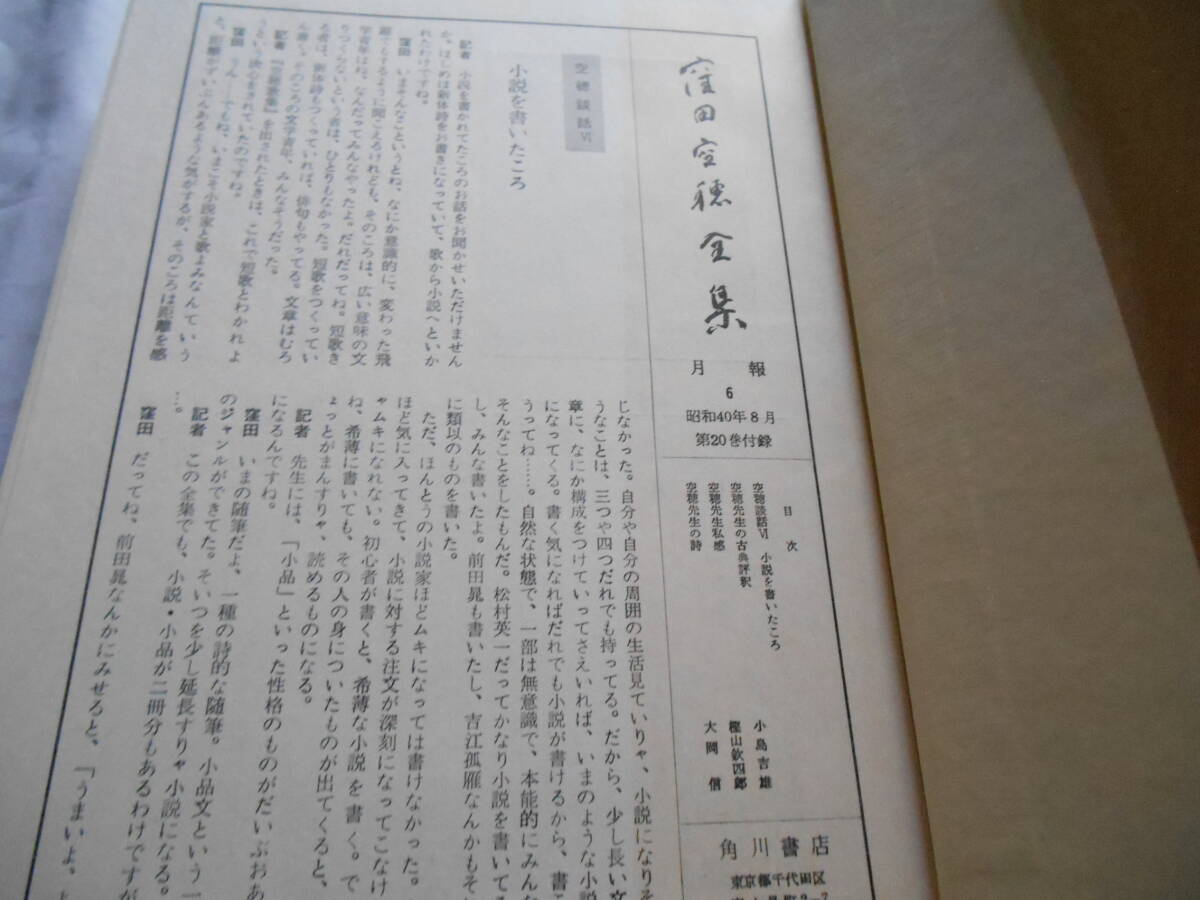 窪田空穂全集
月報
6
昭和40年8月
第20巻付録
目次
空穂談話Ⅵ 小説を書いたころ
空穂先生の古典評釈 小島吉雄
空穂先生私感 樫山欽四郎
空穂先生の詩 大岡信
角川書店
東京都千代田区
空穂談話Ⅵ
小説を書いたころ
記者 小説を書かれてたころのお話をお聞かせいただけません
か。はじめは新体詩をお書きになっていて、歌から小説へといか
れたわけですね。
窪田 いまそんなこというとね、なにか意識的に、変わった飛
躍でもするように聞こえるけれども、そのころは、広い意味の文
学青年はね、なんだってみんなやったよ。だれだってね。短歌き
りつくらないという者は、ひとりもなかった。短歌をつくってい
る者は、新体詩もつくっていれば、俳句もやってる。文章はむろ
ん書く。そのころの文学青年、みんなそうだった。
記者 『空穂歌集』を出されたときは、これで短歌とわかれよ
うという決心をされていたのですね。
窪田 うん……でもね、いまこそ小説家と歌よみなんていう
と、距離がずいぶんあるような気がするが、そのころは距離を感
じなかった。自分や自分の周囲の生活見ていりゃ、小説になりそ
うなことは、三つや四つだれでも持ってる。だから、少し長い文
章に、なにか構成をつけていってさえいれば、いまのような小説
になってくる。書く気になればだれでも小説が書けるから、書こ
うってね……。自然な状態で、一部は無意識で、本能的にみんな
そんなことをしたもんだ。松村英一だってかなり小説を書いてる
し、みんな書いたよ。前田晁も書いたし、吉江孤雁なんかもそ
に類以のものを書いた。
ただ、ほんとうの小説家ほどムキになっては書けなかった。
ほど気に入ってきて、小説に対する注文が深刻になってこなけ
ゃムキになれない。初心者が書くと、希薄な小説を書く。で
ね、希薄に書いても、その人の身についたものが出てくると、
ょっとがまんすりゃ、読めるものになる。
記者 先生には、「小品」といった性格のものがだいぶおあ
になるんですね。
窪田 いまの随筆だよ、一種の詩的な随筆。小品文という一
のジャンルができてた。そいつを少し延長すりゃ小説になる。
記者 この全集でも、小説・小品が二冊分もあるわけですが
…。
窪田 だってね、前田晁なんかにみせると、「うまいよ、